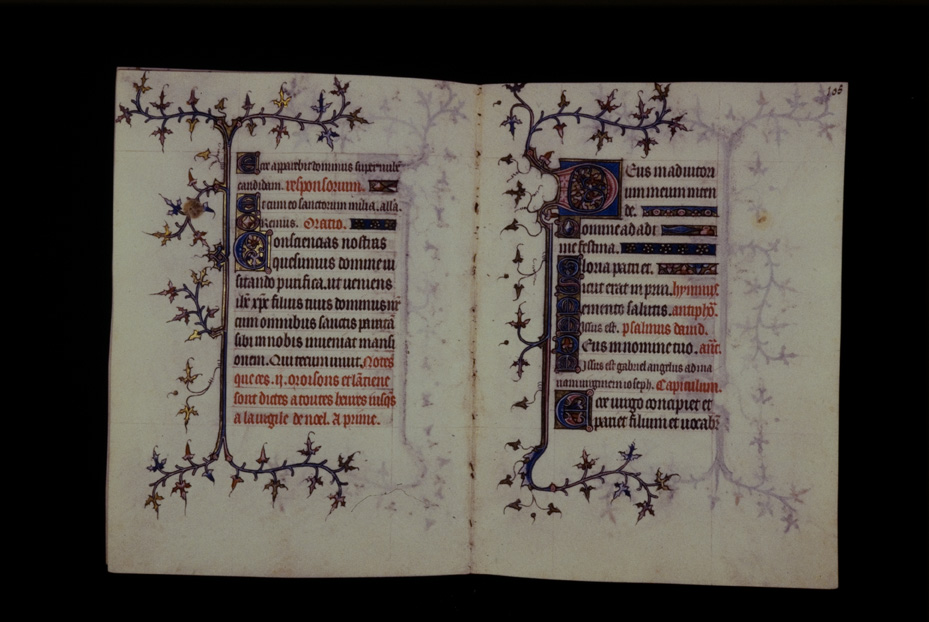 Ecce apparebit dominus super nubē
candidam. responsorium.
Et cum eo sanctorum milia. alla.
Oremus. Oratio.
Consciencias nostras
quesumus domine ui
sitando purifica. ut ueniens
ih̄c xp̄c filius tuus dominus nr̄
cum omnibus sanctis paratā
sibi in nobis inueniat mansi
onem. Qui tecum uiuit. Notes
que ces .ij. oroisons et lantiene
sont dictes a toutes heures iusqs
a la uigile de noel. A prime.
108
Deus in adiutori
um meum inten
de.
Domine ad adi
festina.
Gloria patri et.
Sicut erat in prin. hymnus
Memento salutis. antiphō.
Missus est. psalmus dauid.
Deus in nomine tuo. añt.
Missus est gabriel angelus ad ma
riam uirginem ioseph. Capitulum.
Ecce uirgo concipiet et
pariet filium et uocabr̄